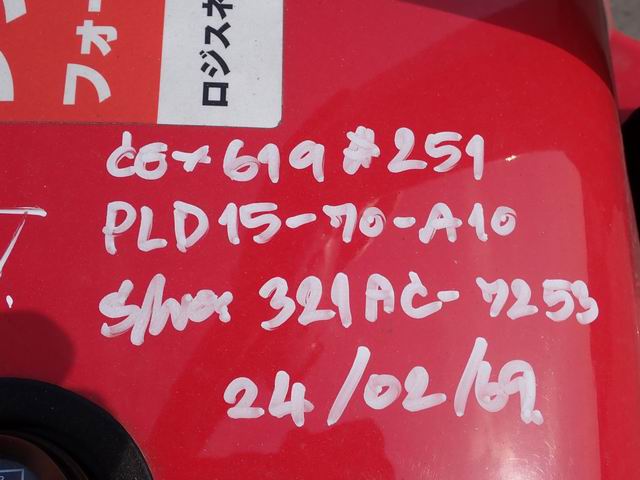 フォー
ロジスネ
619 #251
PLD15-70-A10
S/No. 321AC-7253
24/02/69